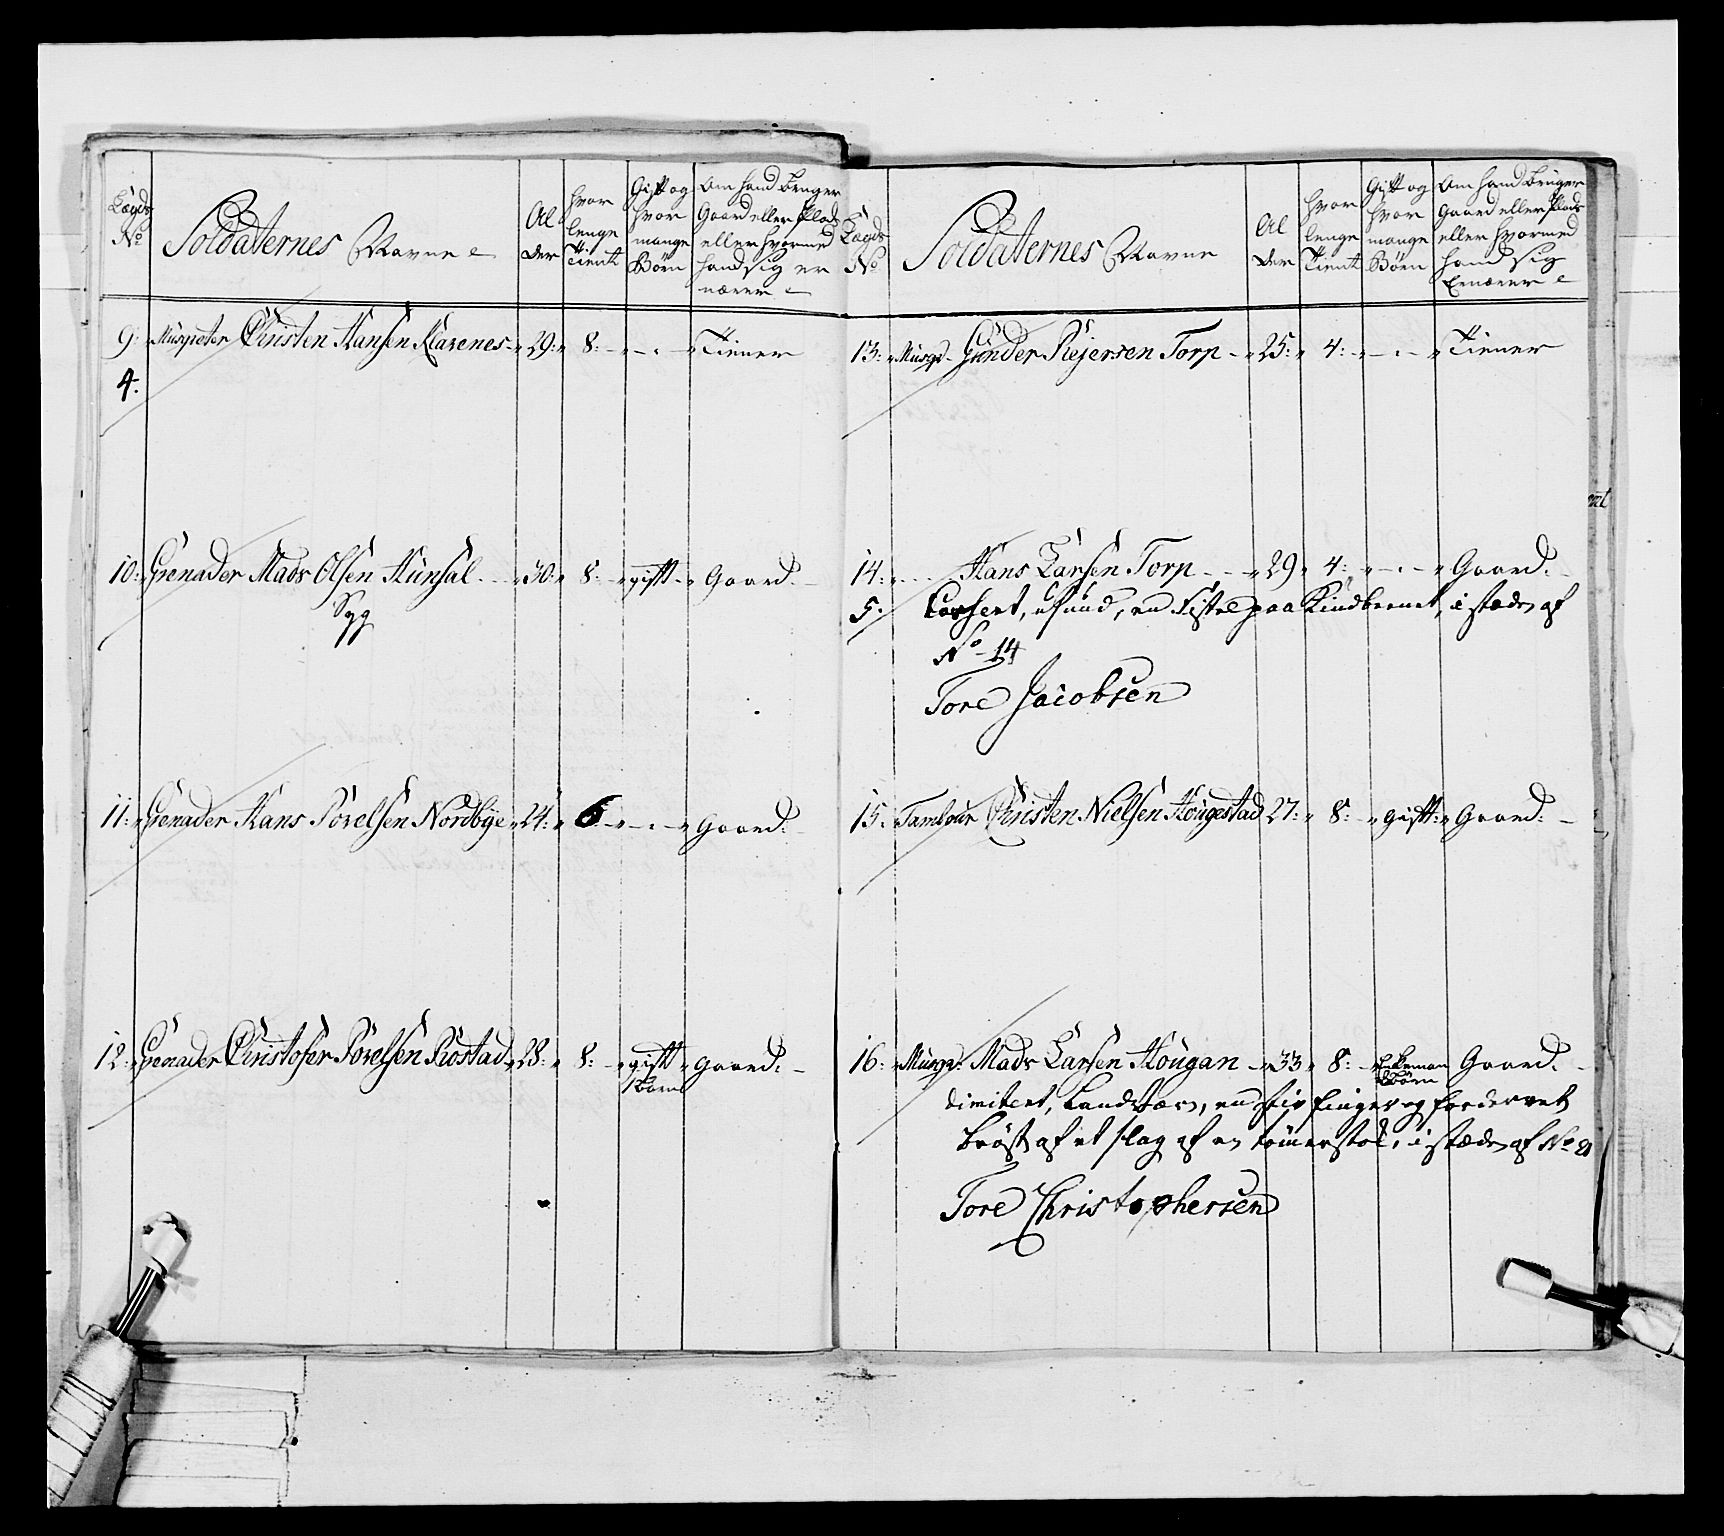 Lægds No
Soldaternes Navne
Al der
hvor lenge Tient
Gift og hvor mange Börn
Om hand bruger Gaard eller Plads eller hvormed hand sig er nærer
9: Musqveter Christen Hansen Klavenes 29: 8: - Tiener
4.
10: Grenader Mads Olsen Hunsal 30: 8: gift Gaard.
Syg
11: Grenader Hans Povelsen Nordbye 24: 6 - Gaard:
12: Grenader Christofer Povelsen Röstad 28: 8: gift Gaard:
1 Barn
Lægds No
Soldaternes Navne
Al der
hvor lenge Tient
Gift og hvor mange Börn
Om hand bruger Gaard eller Plads eller hvormed hand sig Ernærer
13: Musqv. Gunder Rejersen Torp 25: 4: - Tiener
14: Hans Larsen Torp 29 4: - Gaard:
5. Casseret, usund, en Fistel paa Kindbeenet, i stæden af
No 14
Tore Jacobsen
15. Tambour Christen Nielsen Hougestad 27: 8: gift: Gaard:
16: Musqv: Mads Larsen Hougan 33 8: Enkeman Gaard:
Börn
dimitert, Landværn, en stiv finger og fordervet
bröst af et slag af en tömmerstok, i stæden af No 21
Tore Christophersen